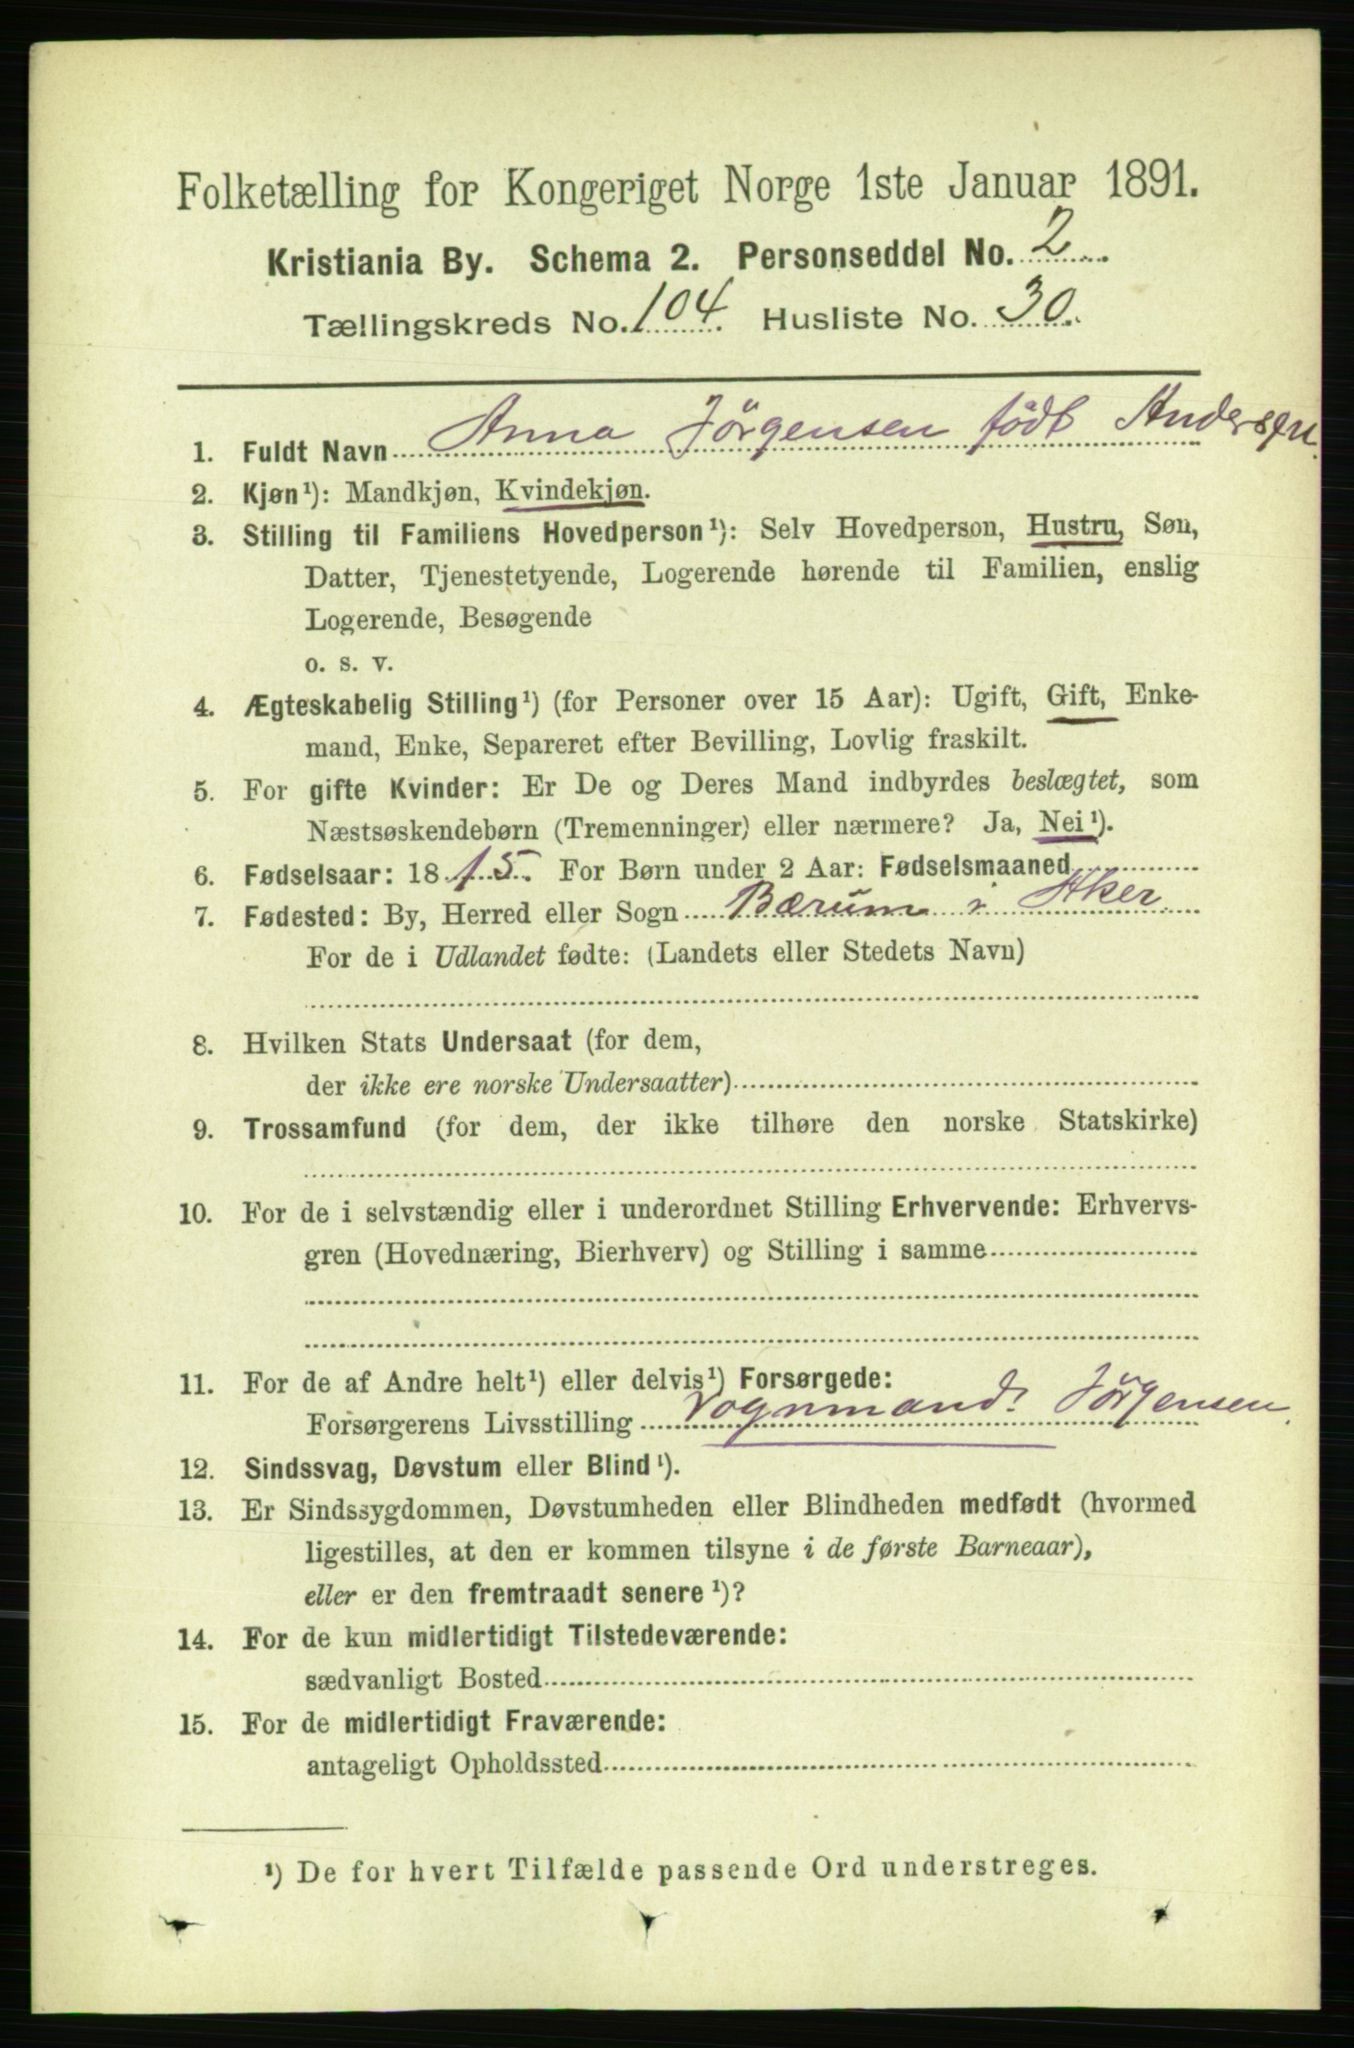 Folketælling for Kongeriget Norge 1ste Januar 1891.
Kristiania By. Schema 2. Personseddel No. 2
Tællingskreds No. 104. Husliste No. 30.
1. Fuldt Navn Anna Jörgensen født Andersen.
2. Kjøn¹): Mandkjøn, Kvindekjøn.
3. Stilling til Familiens Hovedperson¹): Selv Hovedperson, Hustru, Søn,
Datter, Tjenestetyende, Logerende hørende til Familien, enslig
Logerende, Besøgende
o. s. v.
4. Ægteskabelig Stilling¹) (for Personer over 15 Aar): Ugift, Gift, Enke-
mand, Enke, Separeret efter Bevilling, Lovlig fraskilt.
5. For gifte Kvinder: Er De og Deres Mand indbyrdes beslægtet, som
Næstsøskendebørn (Tremenninger) eller nærmere? Ja, Nei¹).
6. Fødselsaar: 1815. For Børn under 2 Aar: Fødselsmaaned
7. Fødested: By, Herred eller Sogn Bærum i Aker.
For de i Udlandet fødte: (Landets eller Stedets Navn)
8. Hvilken Stats Undersaat (for dem,
der ikke ere norske Undersaatter)
9. Trossamfund (for dem, der ikke tilhøre den norske Statskirke)
10. For de i selvstændig eller i underordnet Stilling Erhvervende: Erhvervs-
gren (Hovednæring, Bierhverv) og Stilling i samme
11. For de af Andre helt¹) eller delvis¹) Forsørgede:
Forsørgerens Livsstilling Vognmand. Jörgensen.
12. Sindssvag, Døvstum eller Blind¹).
13. Er Sindssygdommen, Døvstumheden eller Blindheden medfødt (hvormed
ligestilles, at den er kommen tilsyne i de første Barneaar),
eller er den fremtraadt senere¹)?
14. For de kun midlertidigt Tilstedeværende:
sædvanligt Bosted
15. For de midlertidigt Fraværende:
antageligt Opholdssted
¹) De for hvert Tilfælde passende Ord understreges.